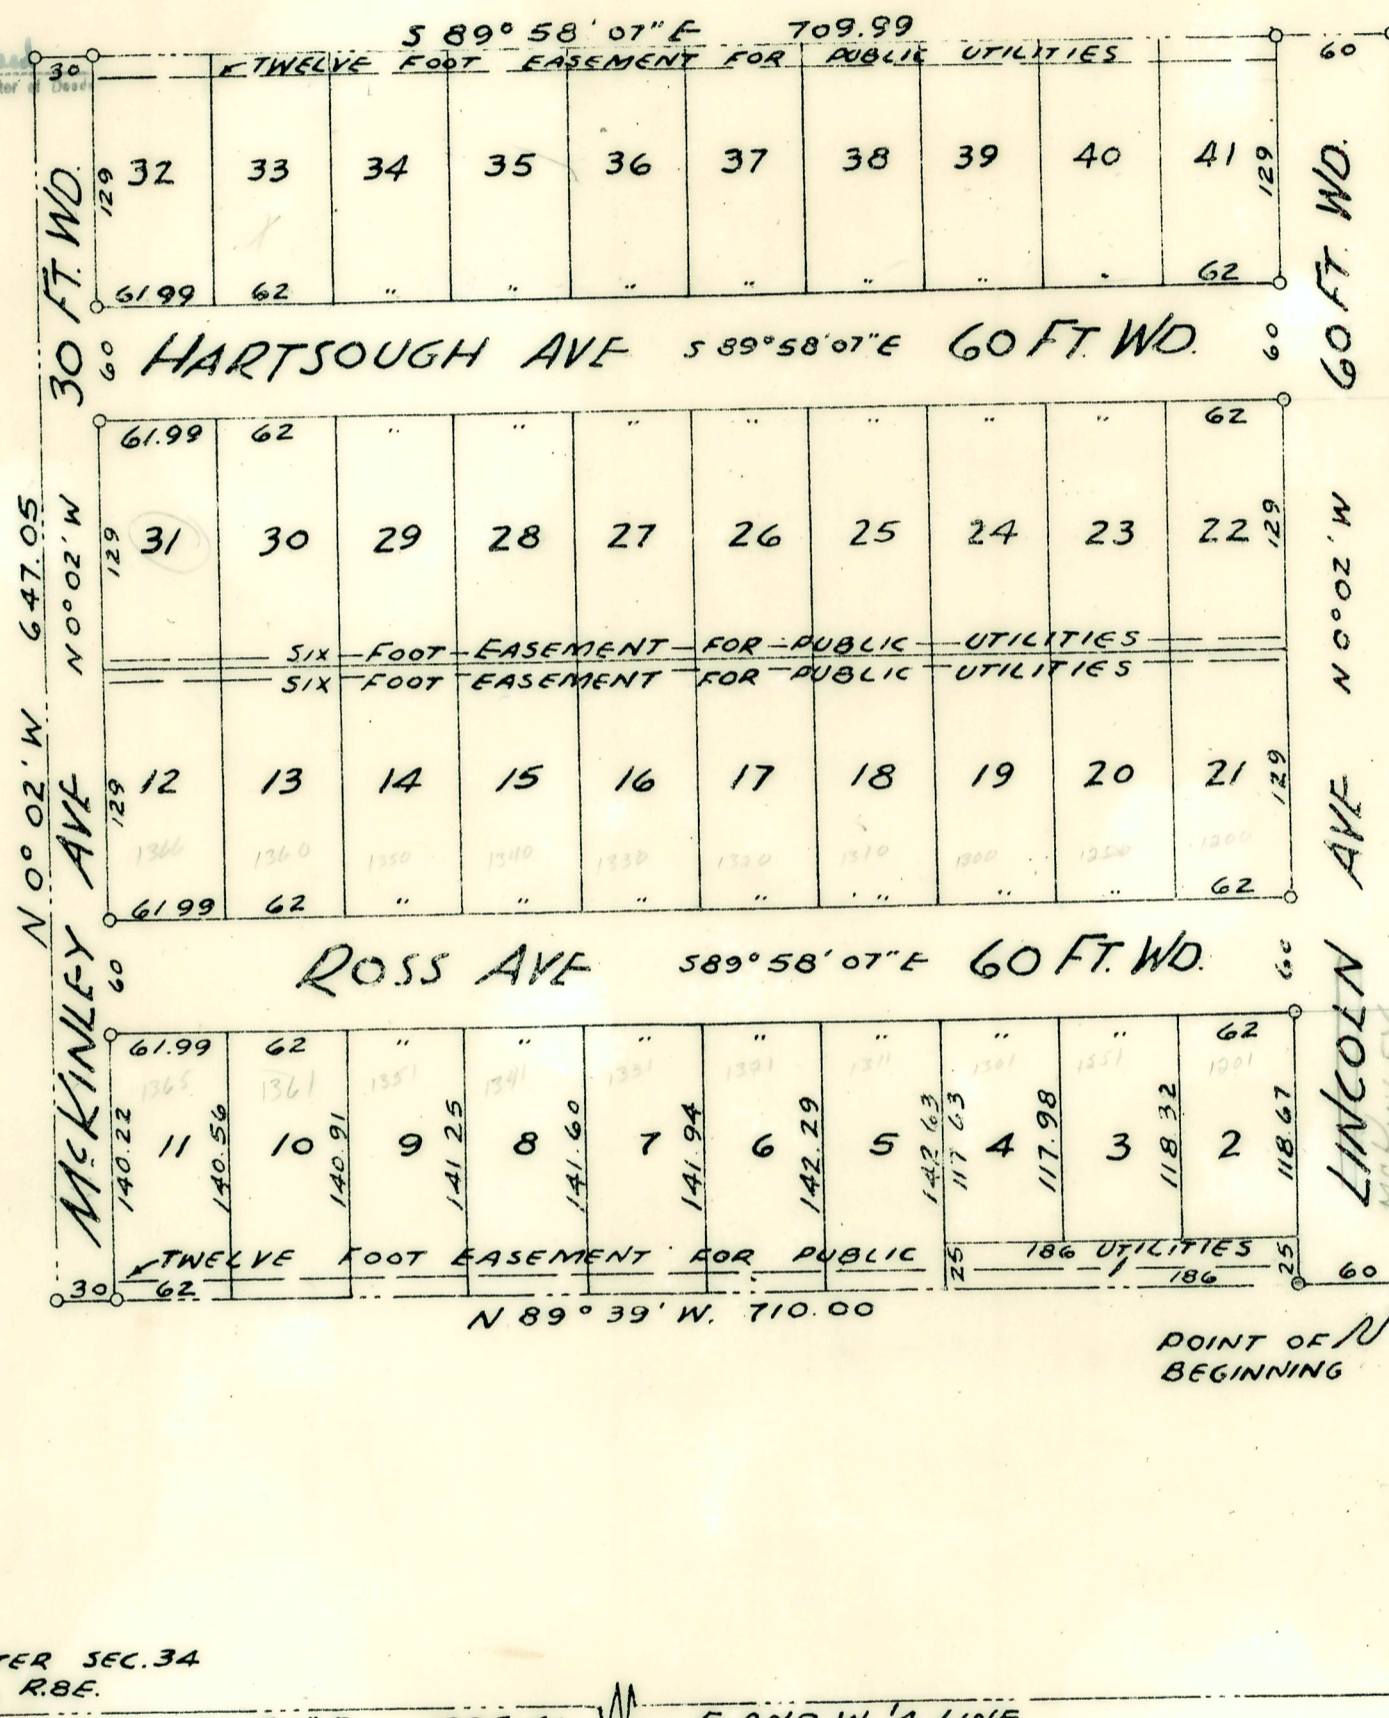 S 89° 58' 07" E 709.99
30 TWELVE FOOT EASEMENT FOR PUBLIC UTILITIES 60
129 32 33 34 35 36 37 38 39 40 41 129
61.99 62 " " " " " " " 62
30 FT. WD.
60 FT. WD.
60 HARTSOUGH AVE S 89°58'07"E 60 FT. WD. 60
61.99 62 " " " " " " " 62
129 31 30 29 28 27 26 25 24 23 22 129
N 0° 02' W 647.05
N 0° 02' W
N 0° 02' W
SIX FOOT EASEMENT FOR PUBLIC UTILITIES
SIX FOOT EASEMENT FOR PUBLIC UTILITIES
129 12 13 14 15 16 17 18 19 20 21 129
1366 1360 1350 1340 1330 1320 1310 1300 1200
61.99 62 " " " " " " " 62
McKINLEY AVE
LINCOLN AVE
60 ROSS AVE S89°58'07"E 60 FT. WD. 60
61.99 62 " " " " " " " 62
1365 1361 1351 1341 1331 1321 1311 1301 1251 1201
140.22 11 140.56 10 140.91 9 141.25 8 141.60 7 141.94 6 142.29 5 142.63 117.63 4 117.98 3 118.32 2 118.67
TWELVE FOOT EASEMENT FOR PUBLIC 25 186 UTILITIES 25
30 62 186 60
N 89° 39' W. 710.00
POINT OF
BEGINNING
TER SEC. 34
R.8E.